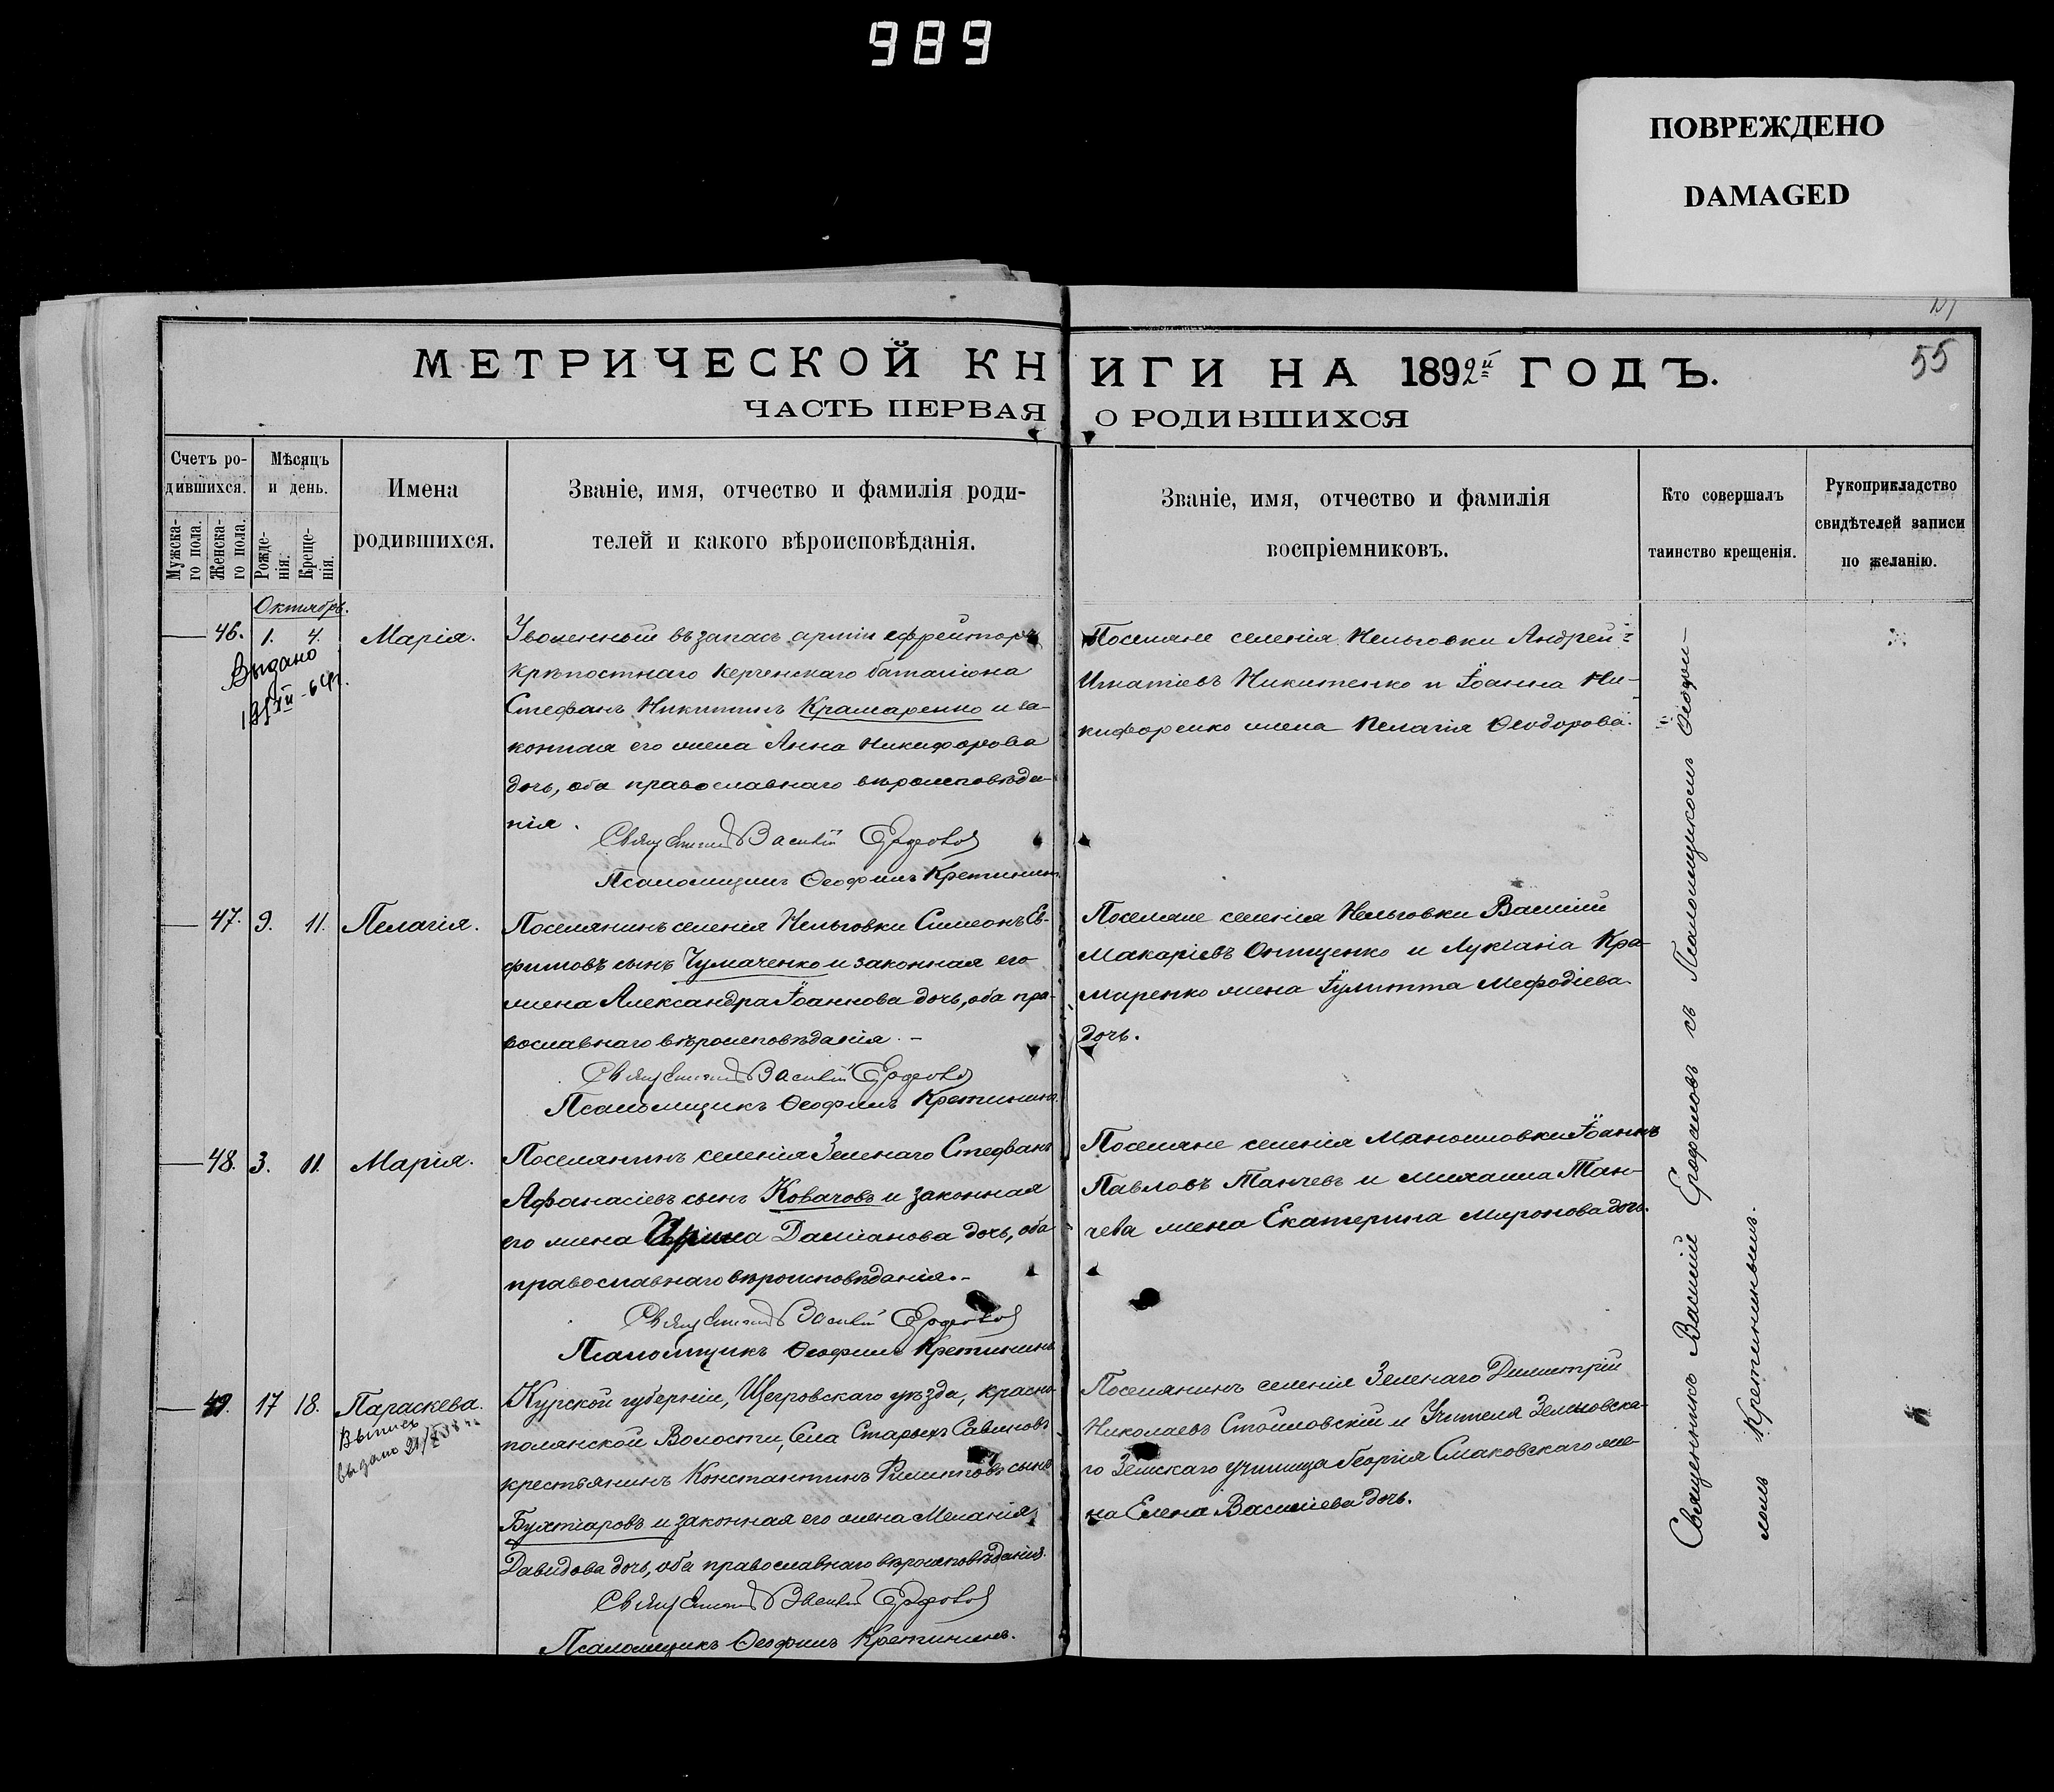 989
ПОВРЕЖДЕНО
DAMAGED
МЕТРИЧЕСКОЙ КНИГИ НА 1892й ГОДЪ.
55
ЧАСТЬ ПЕРВАЯ О РОДИВШИХСЯ
Счетъ ро-
дившихся.
Мужска-
го пола.
Женска-
го пола.
Мѣсяцъ
и день.
Рожде-
нія.
Креще-
нія.
Имена
родившихся.
Званіе, имя, отчество и фамилія роди-
телей и какого вѣроисповѣданія.
Званіе, имя, отчество и фамилія
воспріемниковъ.
Кто совершалъ
таинство крещенія.
Рукоприкладство
свидѣтелей записи
по желанію.
Октябрь.
46. 1. 4. Марія.
Выдано
Уволенный въ запасъ арміи ефрейторъ
Крѣпостнаго Керченскаго баталіона
Стефанъ Никитинъ Крамаренко и за-
конная его жена Анна Никифорова
дочь, оба православнаго вѣроисповѣда-
нія.
Священникъ Василій Ерофаловъ
Псаломщикъ Ѳеофилъ Кретининъ
Поселяне селенія Нельговки Андрей
Игнатіевъ Никитенко и Іоанна Ни-
кифоренко жена Пелагія Ѳеодорова.
47. 9. 11. Пелагія.
Поселянинъ селенія Нельговки Симеонъ Ев-
фимовъ сынъ Чумаченко и законная его
жена Александра Іоаннова дочь, оба пра-
вославнаго вѣроисповѣданія. -
Священникъ Василій Ерофаловъ
Псаломщикъ Ѳеофилъ Кретининъ.
Поселяне селенія Нельговки Василій
Макаріевъ Онищенко и Лукіана Кра-
маренко жена Іулитта Меѳодіева
дочь.
48. 3. 11. Марія.
Поселянинъ селенія Зеленаго Стефанъ
Афанасіевъ сынъ Ковачовъ и законная
его жена Ирина Даміанова дочь, оба
православнаго вѣроисповѣданія. -
Священникъ Василій Ерофаловъ
Псаломщикъ Ѳеофилъ Кретининъ
Поселяне селенія Мануиловки Іоаннъ
Павловъ Танчевъ и Михаила Тан-
чева жена Екатерина Миронова дочь.
49. 17 18. Параскева.
Выпись
выдана
Курской губерніи, Щегровскаго уѣзда, красно-
полянской Волости, Села Старыхъ Савиновъ
крестьянинъ Константинъ Филипповъ сынъ
Бухтіаровъ и законная его жена Меланія
Давидова дочь, оба православнаго вѣроисповѣданія.
Священникъ Василій Ерофаловъ
Псаломщикъ Ѳеофилъ Кретининъ.
Поселянинъ селенія Зеленаго Димитрій
Николаевъ Стоиловскій и Учителя Зеленовска-
го Земскаго училища Георгія Смаковскаго же-
на Елена Василіева дочь.
Священникъ Василій Ерофаловъ съ Псаломщикомъ Ѳеофи-
ломъ Кретининымъ.